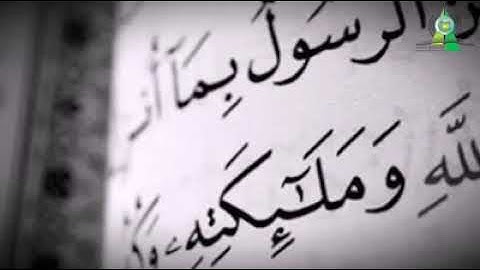 الرَّسُولُ بِمَآ أُنز
للَّهِ وَمَلَٰٓئِكَتِهِۦ